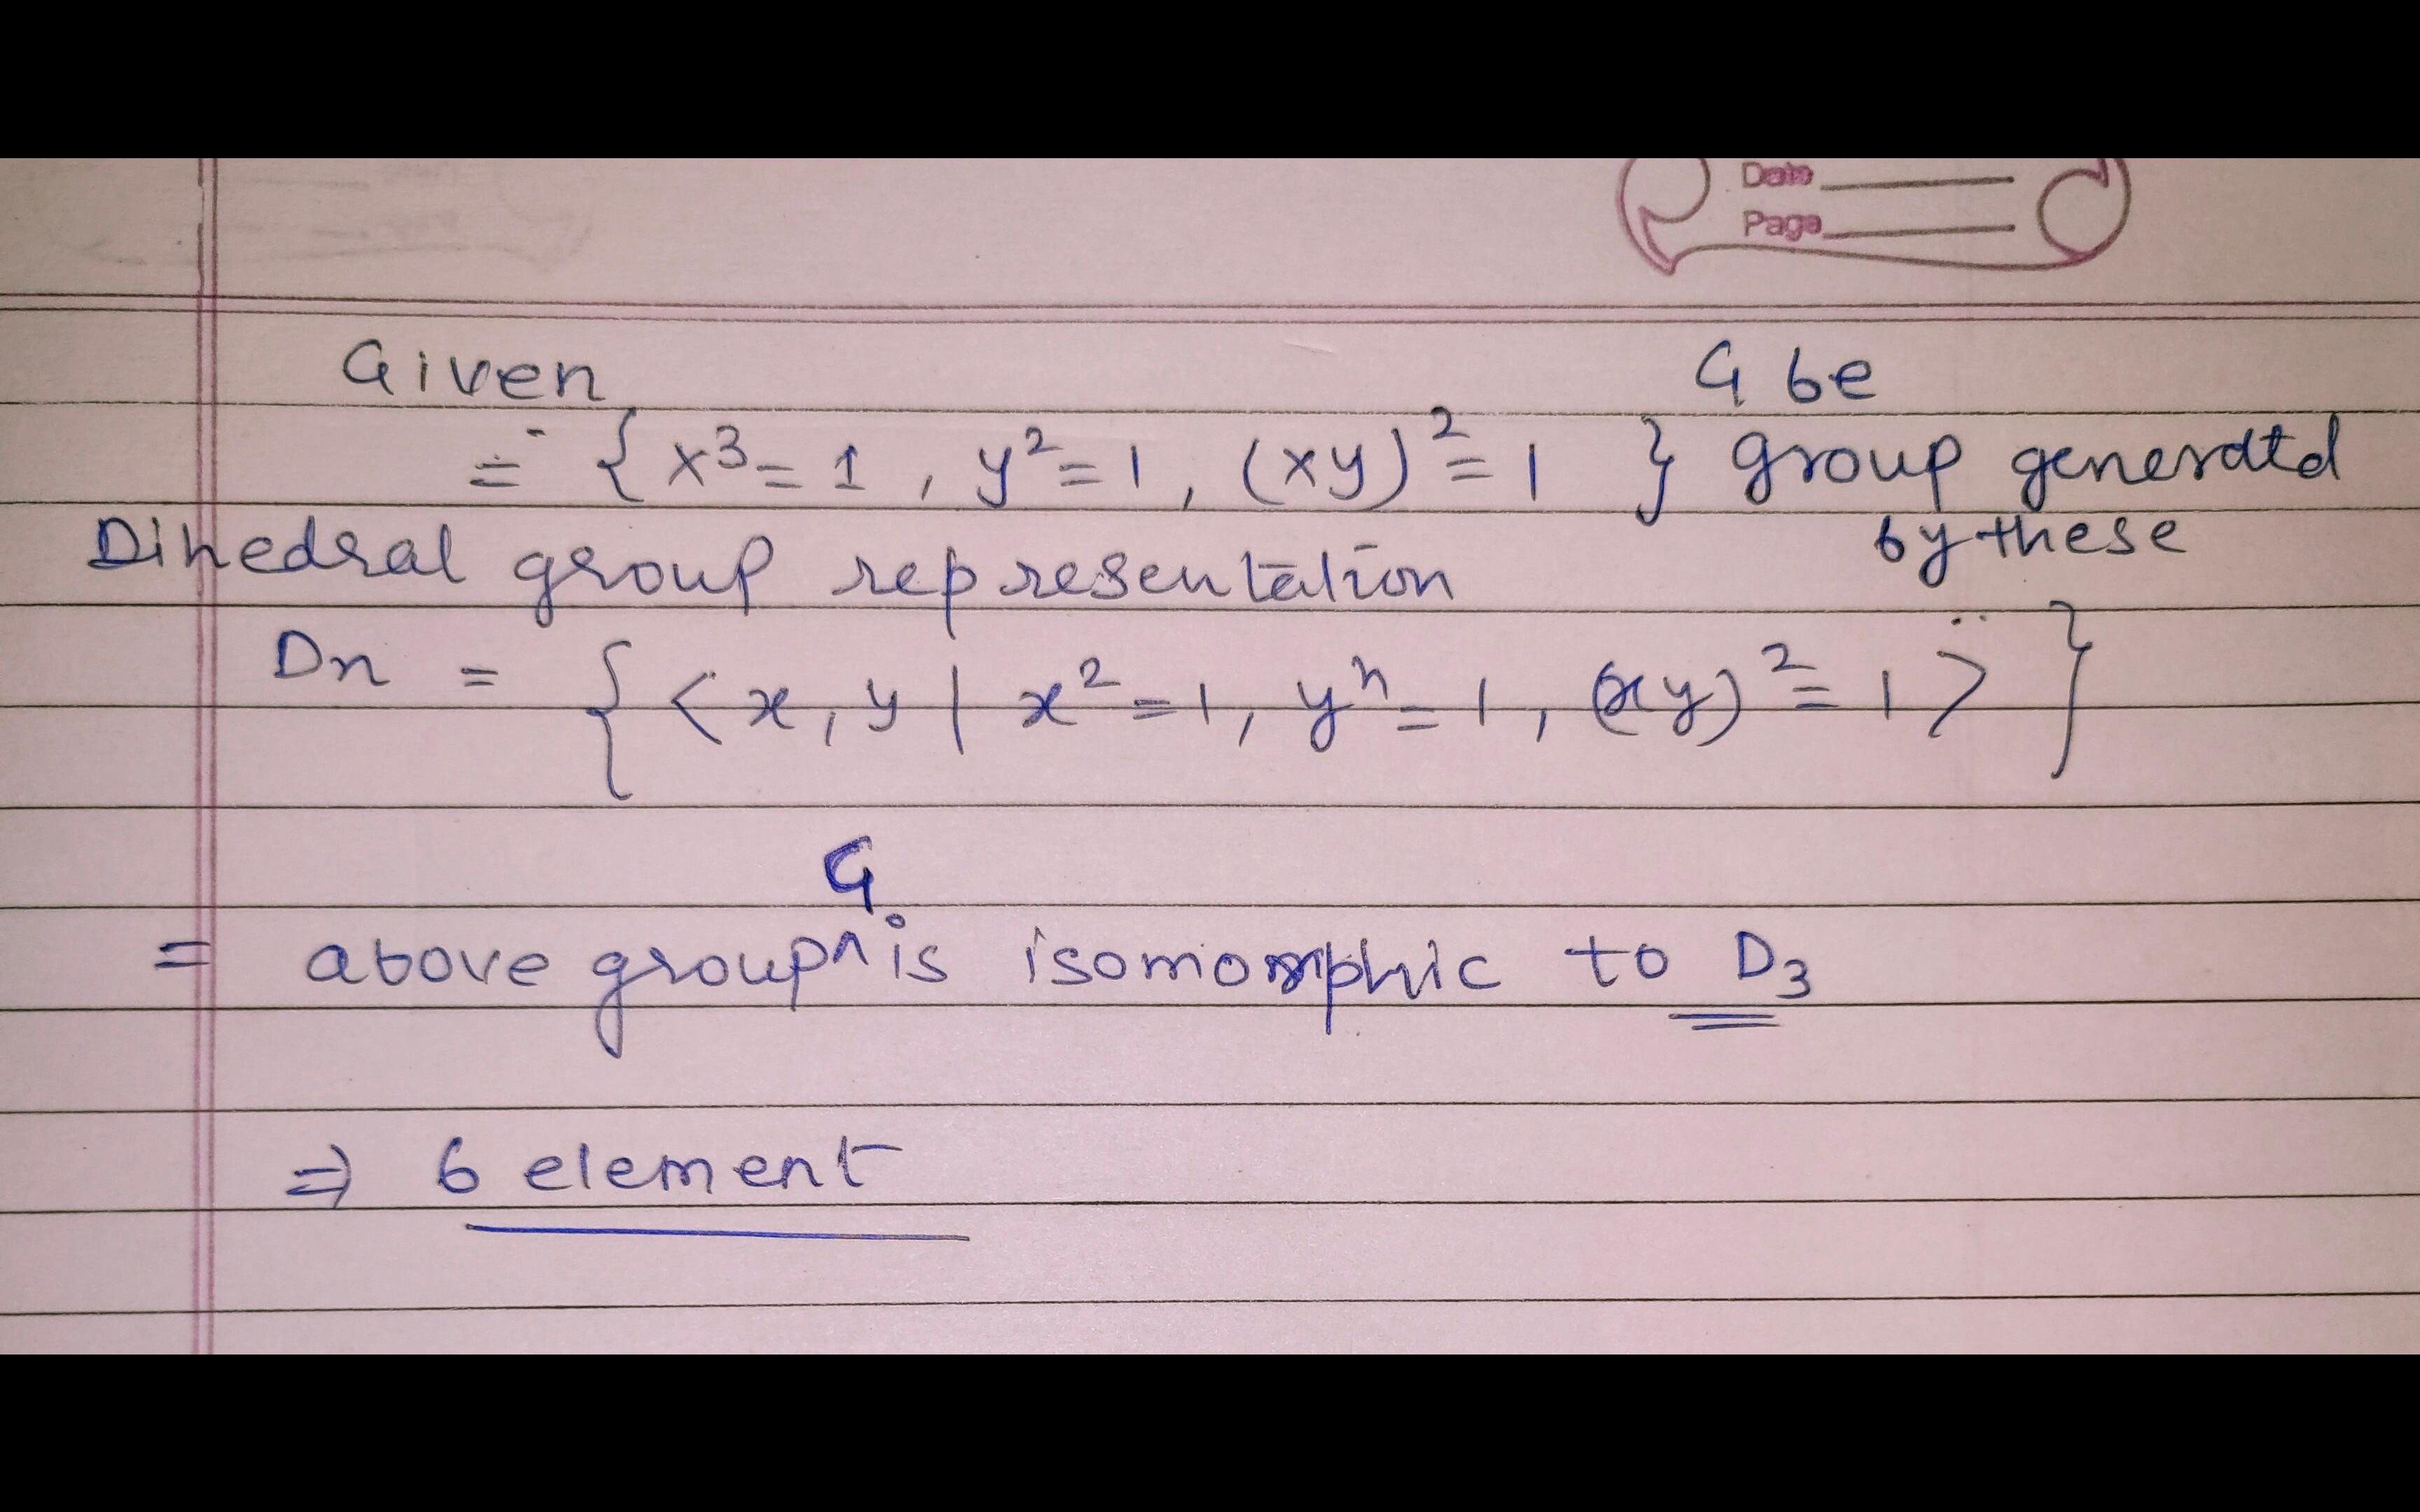 Date
Page
Given
G be
= { x³ = 1, y² = 1, (xy)² = 1 } group generatd
by these
Dihedral group representation
Dn = { < x, y | x² = 1, yⁿ = 1, (xy)² = 1 > }
G
= above group ^ is isomorphic to D₃
⇒ 6 element